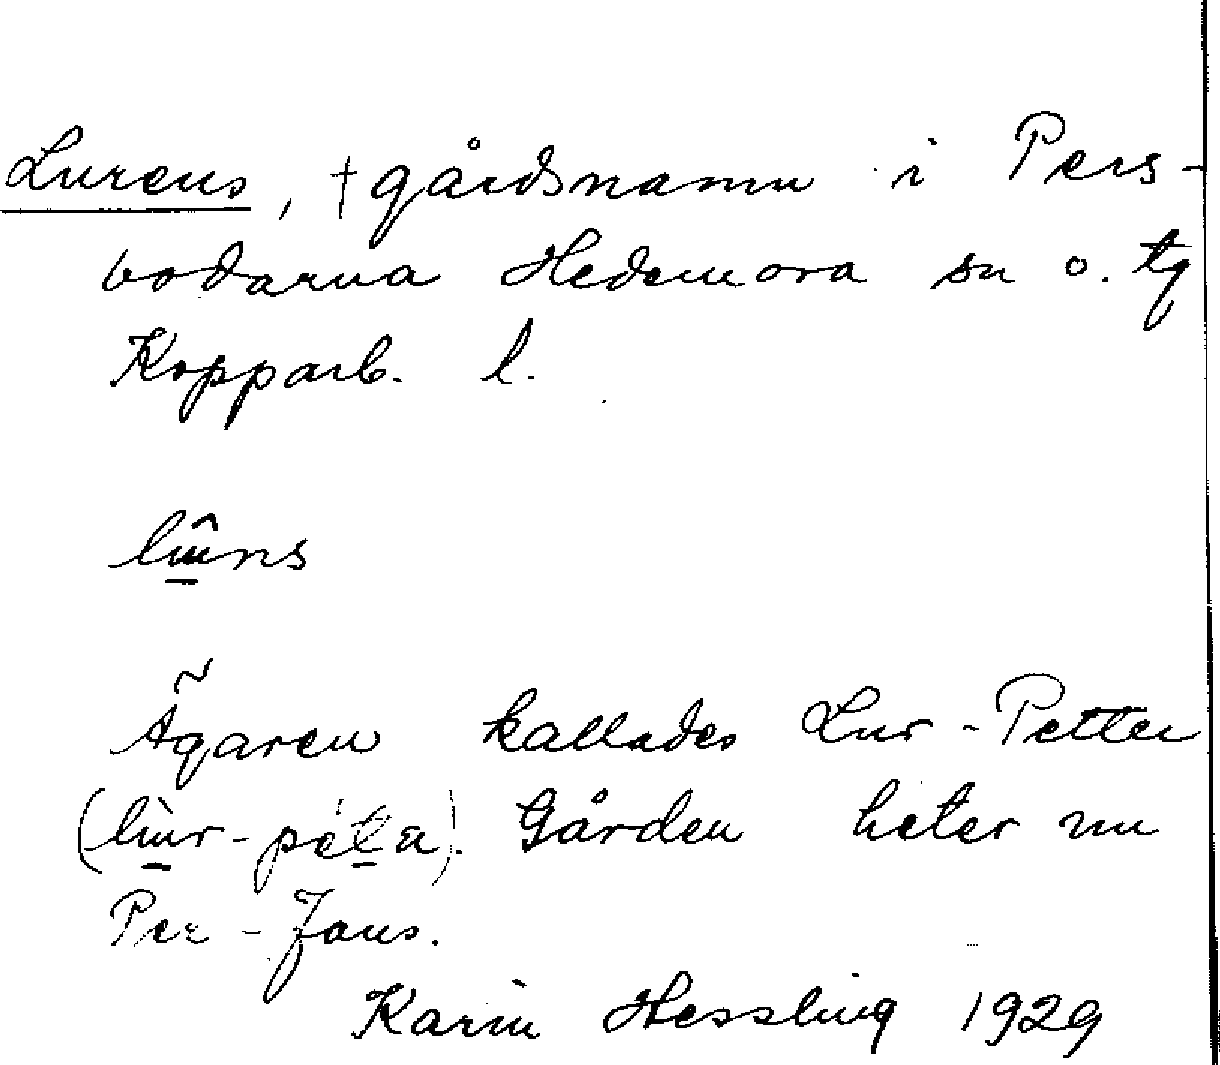 Lurens, †gårdsnamn i Pers-
bodarna Hedemora sn o. tg
Kopparb. l.
Ägaren kallades Lur-Petter
Gården heter nu
Per-Jans.
Karin Hessling 1929